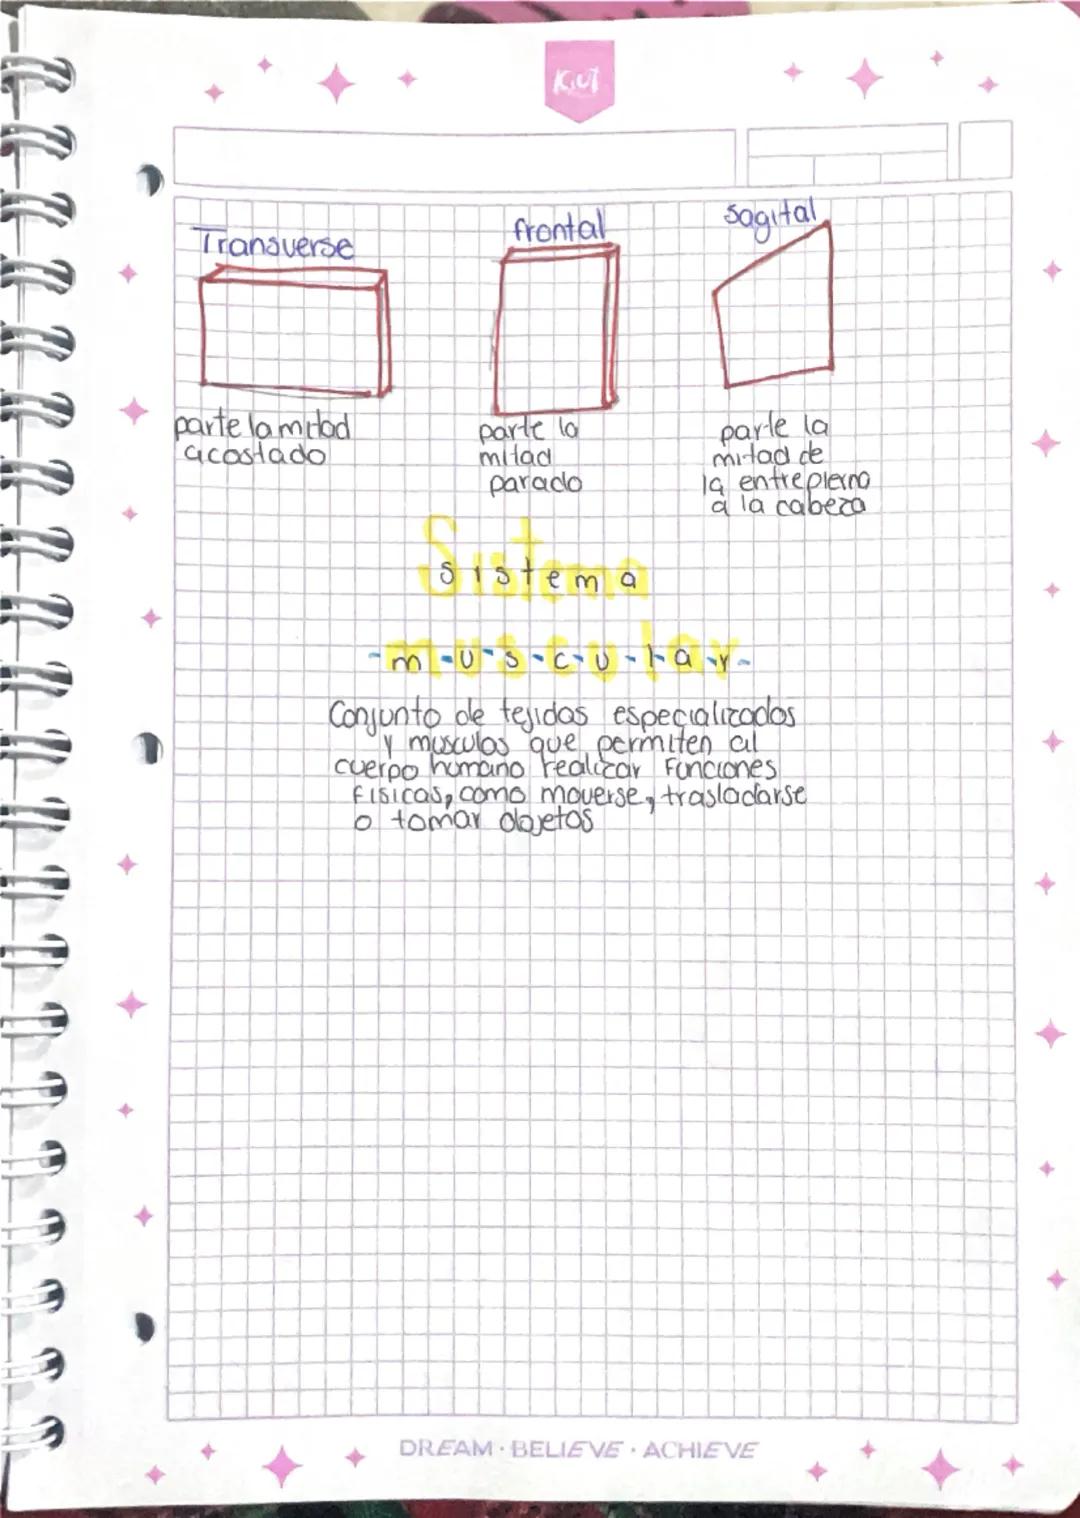 KIUT
Transverse
frontal
sagital
parte la mitad
acostado
parte la
mitad
parado
parte la
mitad de
la entrepierna
a la cabeza
Sistema
sistema
-m-u-s-c-u-l-a-r-
Conjunto de tejidos especializados
y musculos que permiten al
cuerpo humano realizar funciones
fisicas, como moverse, trasladarse
o tomar objetos
DREAM · BELIEVE · ACHIEVE